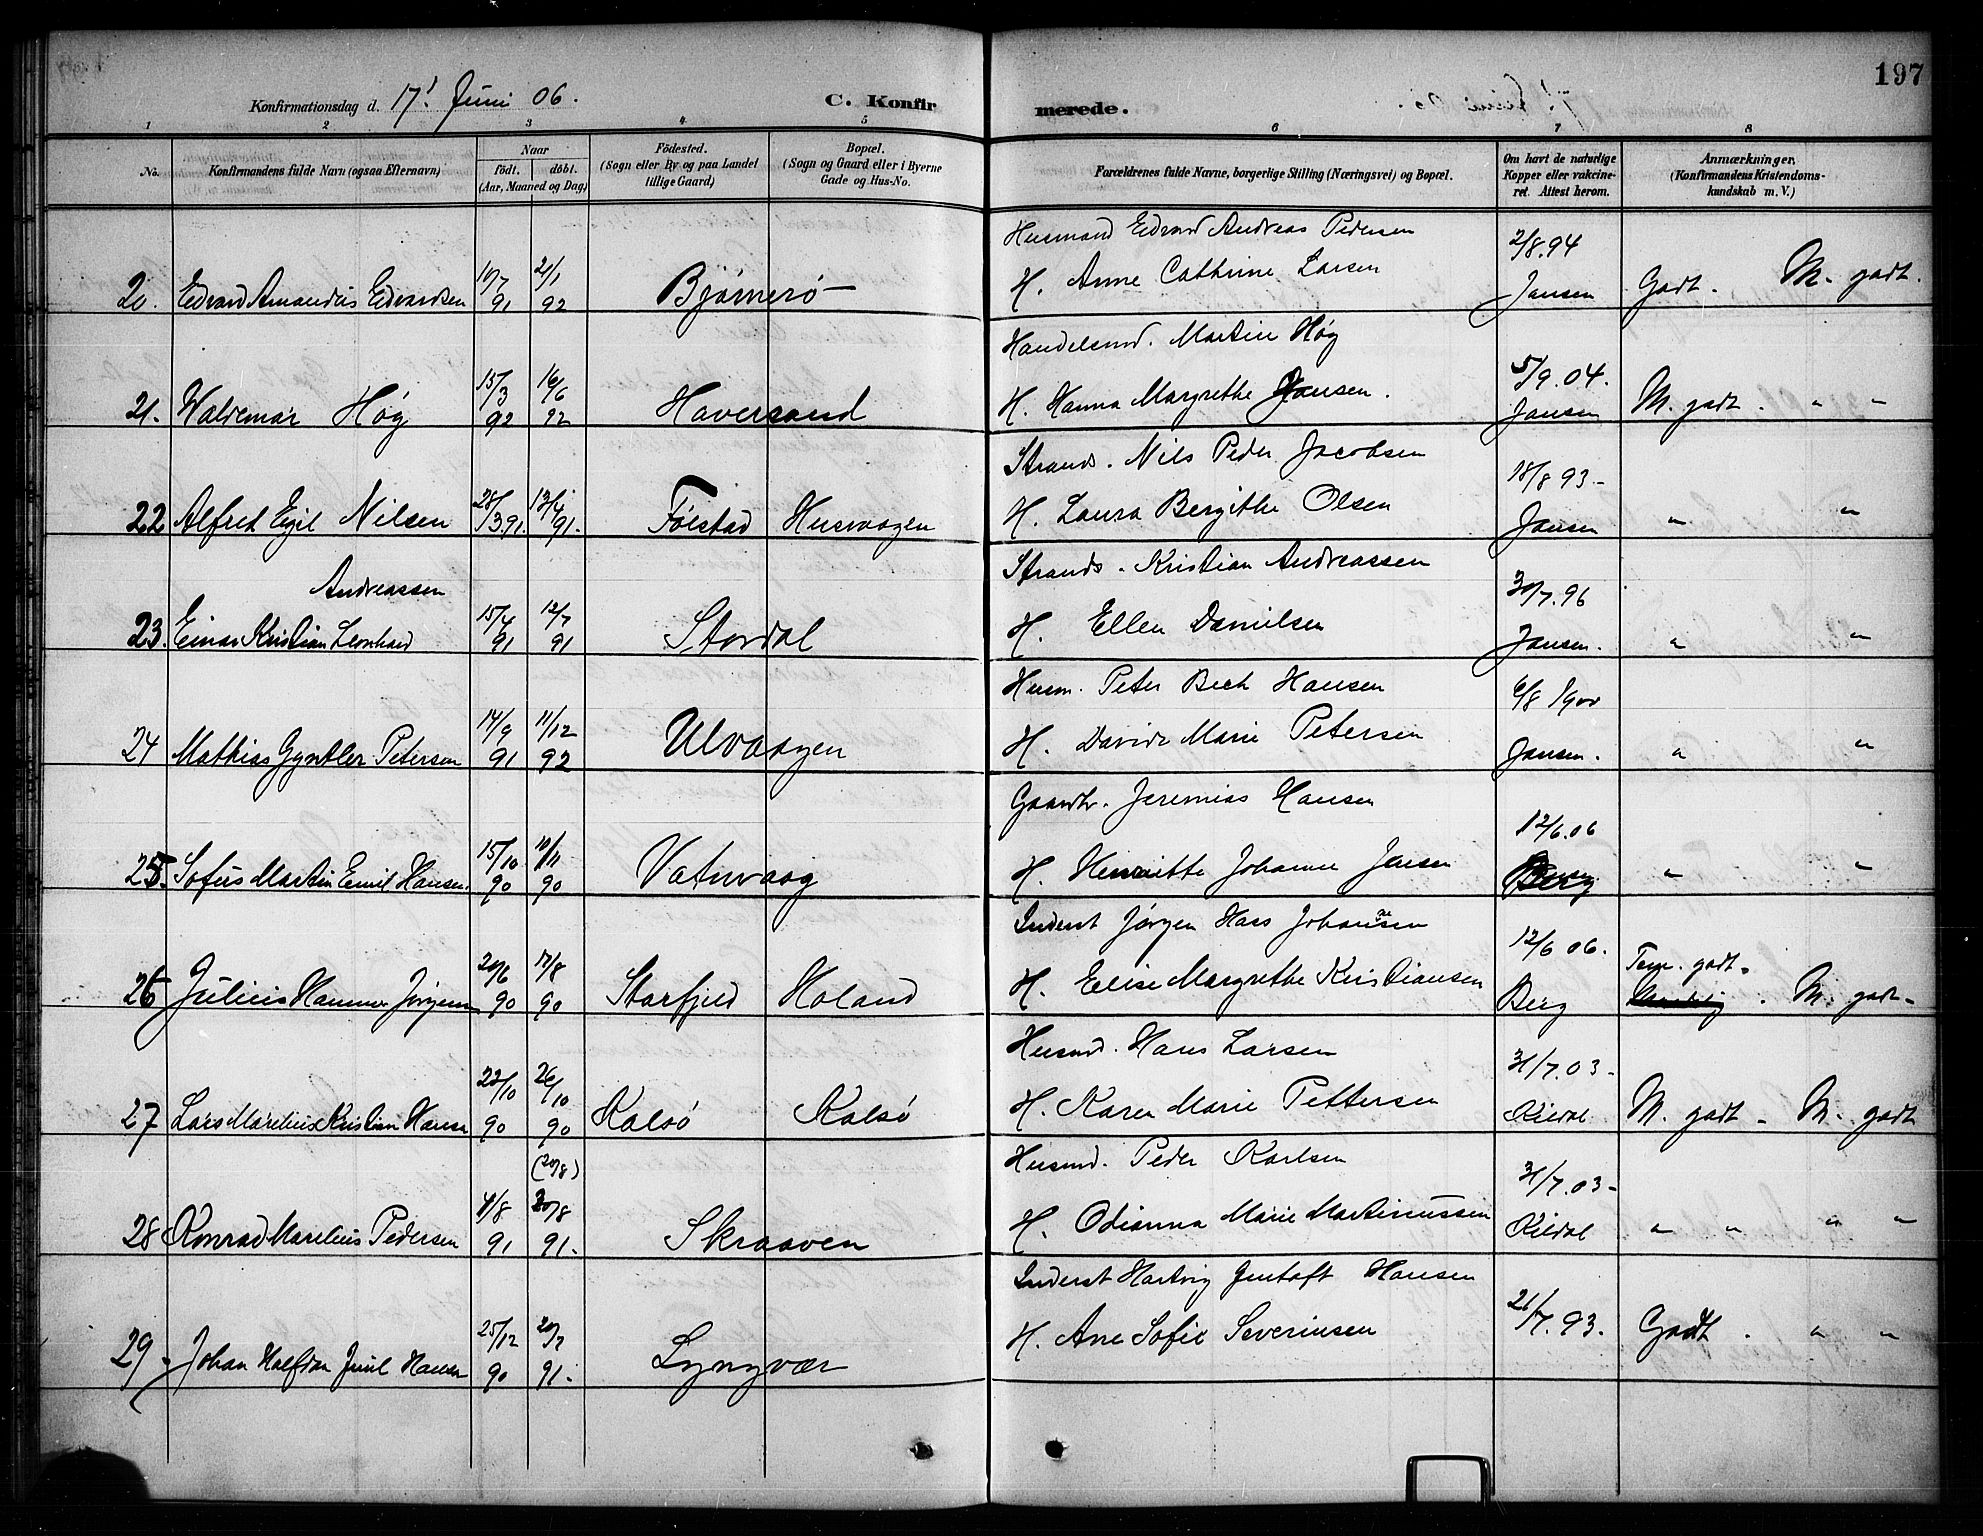 197
Konfirmationsdag d. 17' Juni 06. C. Konfirmerede.
1 2 3 4 5 6 7 8
No. Konfirmandens fulde Navn (ogsaa Efternavn) Naar födt. döbt. (Aar, Maaned og Dag) Födested. (Sogn eller By og paa Landet tillige Gaard) Bopæl. (Sogn og Gaard eller i Byerne Gade og Hus-No. Forældrenes fulde Navne, borgerlige Stilling (Næringsvei) og Bopæl. Om havt de naturlige Kopper eller vakcineret. Attest herom. Anmærkninger, (Konfirmandens Kristendomskundskab m. V.)
Husmand Edvard Andreas Pedersen 2/8.94
20. Edvard Amandus Edvardsen 10/7 91 21/1 92 Bjørnerö H. Anne Cathrine Larsen Jansen Godt. M. godt.
Handelsmd. Martin Høg 5/9.04.
21. Waldemar Høg 15/3 92 16/6 92 Haversand H. Hanna Margrethe Hansen. Jansen M. godt. " "
Strands. Nils Peder Jacobsen 18/8 93.-
22 Alfred Egil Nilsen 28/3.91. 13/4 91. Følstad Husvaagen H. Laura Bergithe Olsen Jansen " "
Andreassen Strands. Kristian Andreassen 30/7.96
23. Einar Kristian Leonhard 15/4 91 12/7 91 Stordal H. Ellen Danielsen Jansen. " "
Husm. Peter Bech Hansen 6/8 1900
24 Mathias Gyntler Petersen 14/9 91 11/12 92 Ulvaagen H. Davida Marie Petersen Jansen. " "
Gaardbr. Jeremias Hansen 12/6.06
25. Sofus Martin Emil Hansen. 15/10 90 10/11 90 Vatnvaag H. Henriette Johanne Jensen Berg " "
Inderst Jørgen Hass Johansen 12/6 06.
26 Julius Hammer Jørgensen 20/6 90 17/8 90 Storfjeld Holand H. Elise Margrethe Kristiansen Berg Tem. godt. M. godt.
Husmd. Hans Larsen 31/7.03-
27 Lars Marelius Kristian Hansen 22/10 90 26/10 90 Kalsö Kalsö H. Karen Marie Pettersen Kildal M. godt - M. godt
(20/8) Husmd. Peder Karlsen 31/7.03-
28 Konrad Marelius Pedersen 4/8 91 30/8 91. Skraaven H. Odianna Marie Martinussen Kildal " " " "
Inderst Hartvig Hansen 21/7.93.
29. Johan Halfdan Juul Hansen 25/12 90 20/7 91. Lyngvær H. Ane Sofie Severinsen Godt. " "